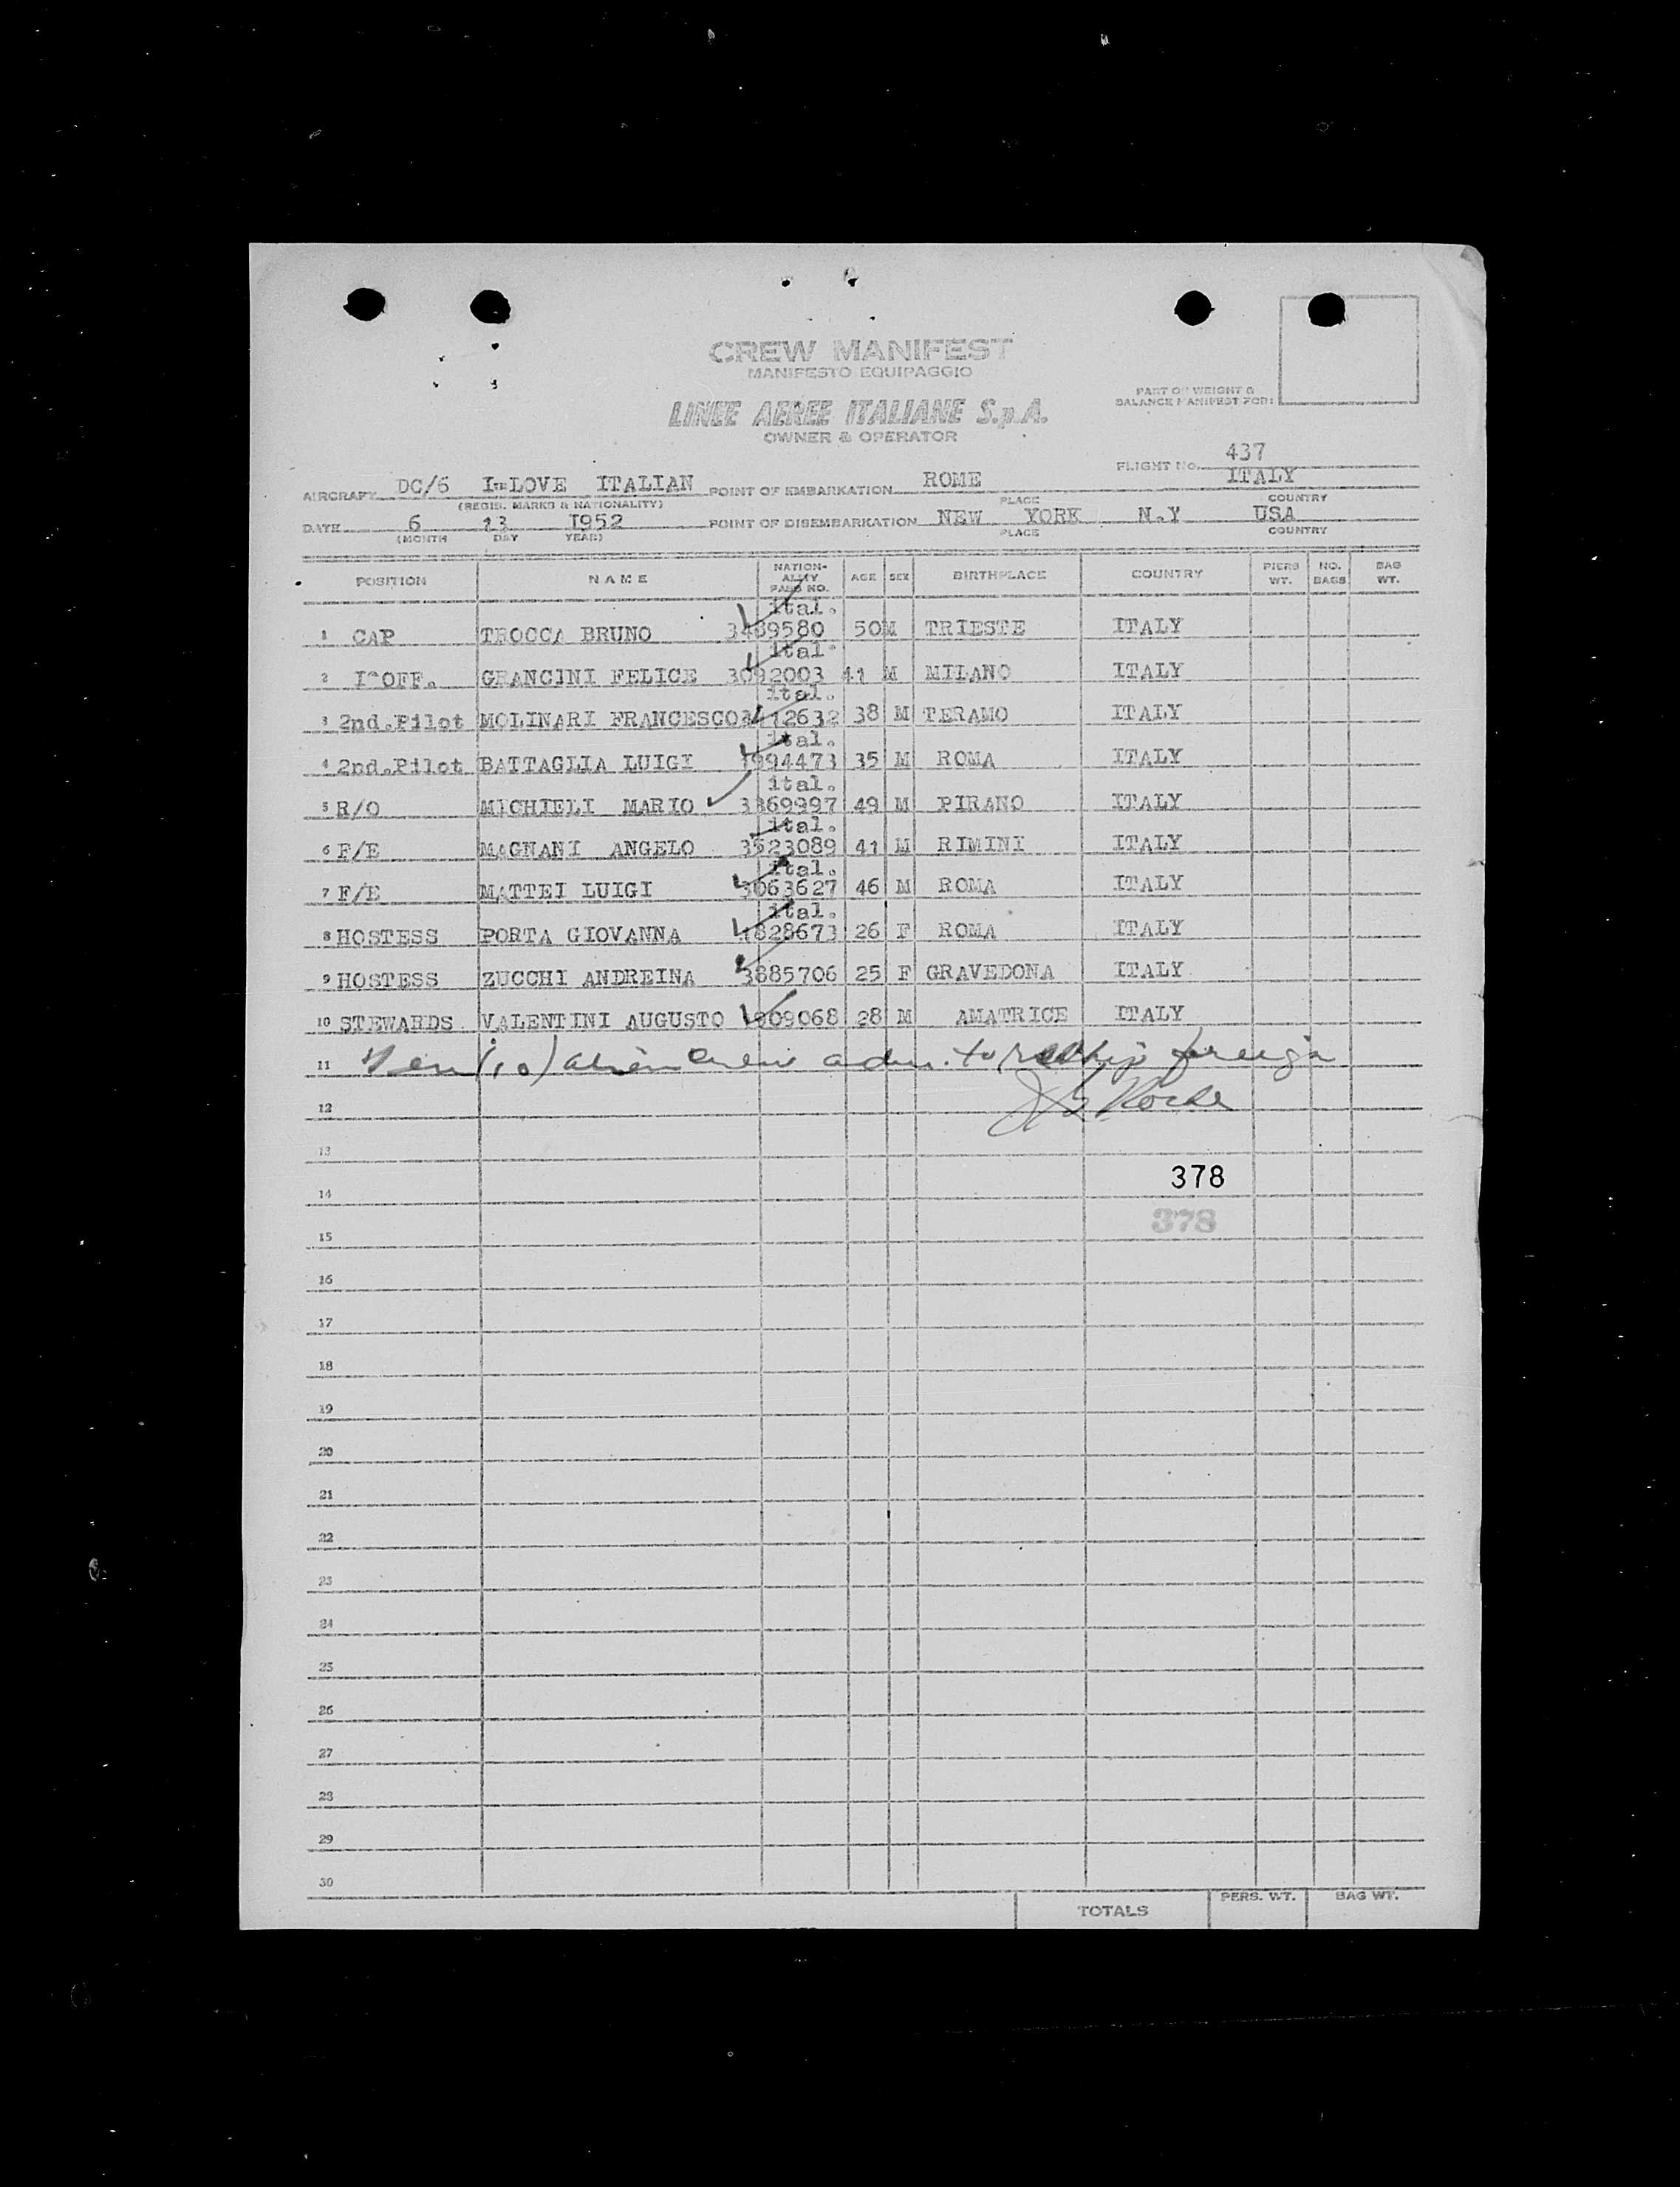 CREW MANIFEST
MANIFESTO EQUIPAGGIO
PART OF WEIGHT &
BALANCE MANIFEST FOR:
LINEE AEREE ITALIANE S.p.A.
OWNER & OPERATOR
FLIGHT No. 437
AIRCRAFT DC/6 I-LOVE ITALIAN POINT OF EMBARKATION ROME ITALY
(REGIS. MARKS & NATIONALITY) PLACE COUNTRY
DATE 6 13 1952 POINT OF DISEMBARKATION NEW YORK N.Y USA
(MONTH DAY YEAR) PLACE COUNTRY
POSITION NAME NATION-ALITY PASS NO. AGE SEX BIRTHPLACE COUNTRY PIERS WT. NO. BAGS BAG WT.
ital.
1 CAP TROCCA BRUNO 3489580 50 M TRIESTE ITALY
ital.
2 I^OFF. GRANCINI FELICE 3092003 41 M MILANO ITALY
ital.
3 2nd.Pilot MOLINARI FRANCESCO 38 M TERAMO ITALY
ital.
4 2nd.Pilot BATTAGLIA LUIGI 1994473 35 M ROMA ITALY
ital.
5 R/O MICHIELI MARIO 3369997 49 M PIRANO ITALY
ital.
6 F/E MAGNANI ANGELO 3523089 41 M RIMINI ITALY
ital.
7 F/E MATTEI LUIGI 3063627 46 M ROMA ITALY
ital.
8 HOSTESS PORTA GIOVANNA 1828673 26 F ROMA ITALY
9 HOSTESS ZUCCHI ANDREINA 3885706 25 F GRAVEDONA ITALY
10 STEWARDS VALENTINI AUGUSTO 28 M AMATRICE ITALY
11 Ten (10) alien crew adm. to reship foreign
12
13
378
14
378
15
16
17
18
19
20
21
22
23
24
25
26
27
28
29
30
TOTALS PERS. WT. BAG WT.